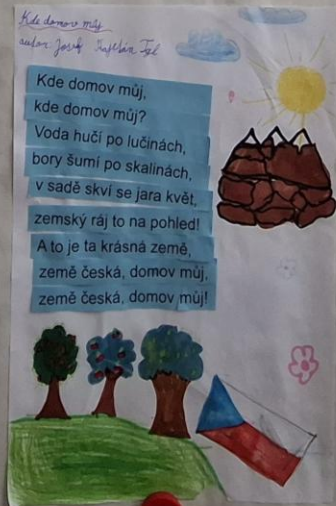 Kde domov můj
autor: Josef Kajetán Tyl
Kde domov můj,
kde domov můj?
Voda hučí po lučinách,
bory šumí po skalinách,
v sadě skví se jara květ,
zemský ráj to na pohled!
A to je ta krásná země,
země česká, domov můj,
země česká, domov můj!